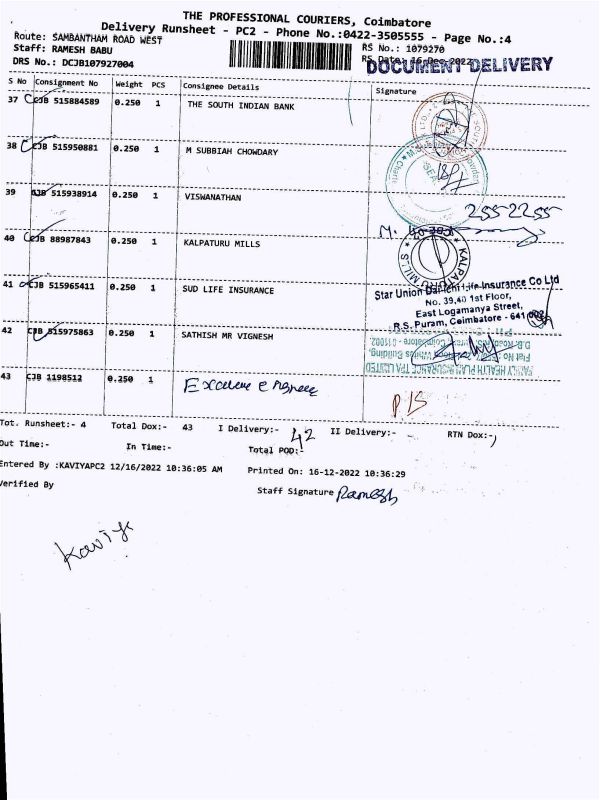 THE PROFESSIONAL COURIERS, Coimbatore
Delivery Runsheet - PC2 - Phone No.:0422-3505555 - Page No.:4
Route: SAMBANTHAM ROAD WEST
RS No.: 1079270
Staff: RAMESH BABU
RS Date: 16-Dec-2022
DOCUMENT DELIVERY
DRS No.: DCJB107927004
S No Consignment No Weight PCS Consignee Details Signature
37 CJB 515884589 0.250 1 THE SOUTH INDIAN BANK
38 CJB 515950881 0.250 1 M SUBBIAH CHOWDARY
39 CJB 515938914 0.250 1 VISWANATHAN
255-2255
40 CJB 88987843 0.250 1 KALPATURU MILLS
41 CJB 515965411 0.250 1 SUD LIFE INSURANCE
Star Union Dai-ichi Life Insurance Co Ltd
No. 39,40 1st Floor,
East Logamanya Street,
R.S. Puram, Coimbatore - 641 002
42 CJB 515975863 0.250 1 SATHISH MR VIGNESH
FAMILY HEALTH PLAN INSURANCE TPA LIMITED
43 CJB 1198512 0.250 1
Tot. Runsheet:- 4 Total Dox:- 43 I Delivery:- 42 II Delivery:- RTN Dox:- 1
Out Time:- In Time:- Total POD:-
Entered By :KAVIYAPC2 12/16/2022 10:36:05 AM Printed On: 16-12-2022 10:36:29
Verified By Staff Signature Ramesh
Kaviya